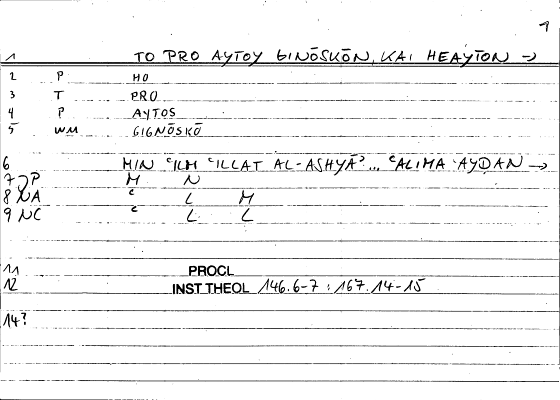 1
1 TO PRO AYTOY GINŌSKŌN, KAI HEAYTON →
2 P HO
3 T PRO
4 P AYTOS
5 WM GIGNŌSKŌ
6 MIN ʿILM ʿILLAT AL-ASHYĀʾ... ʿALIMA AYḌAN →
7 P M N
8 NA ʿ L M
9 NC ʿ L L
11 PROCL
12 INST THEOL 146.6-7 : 167.14-15
14?